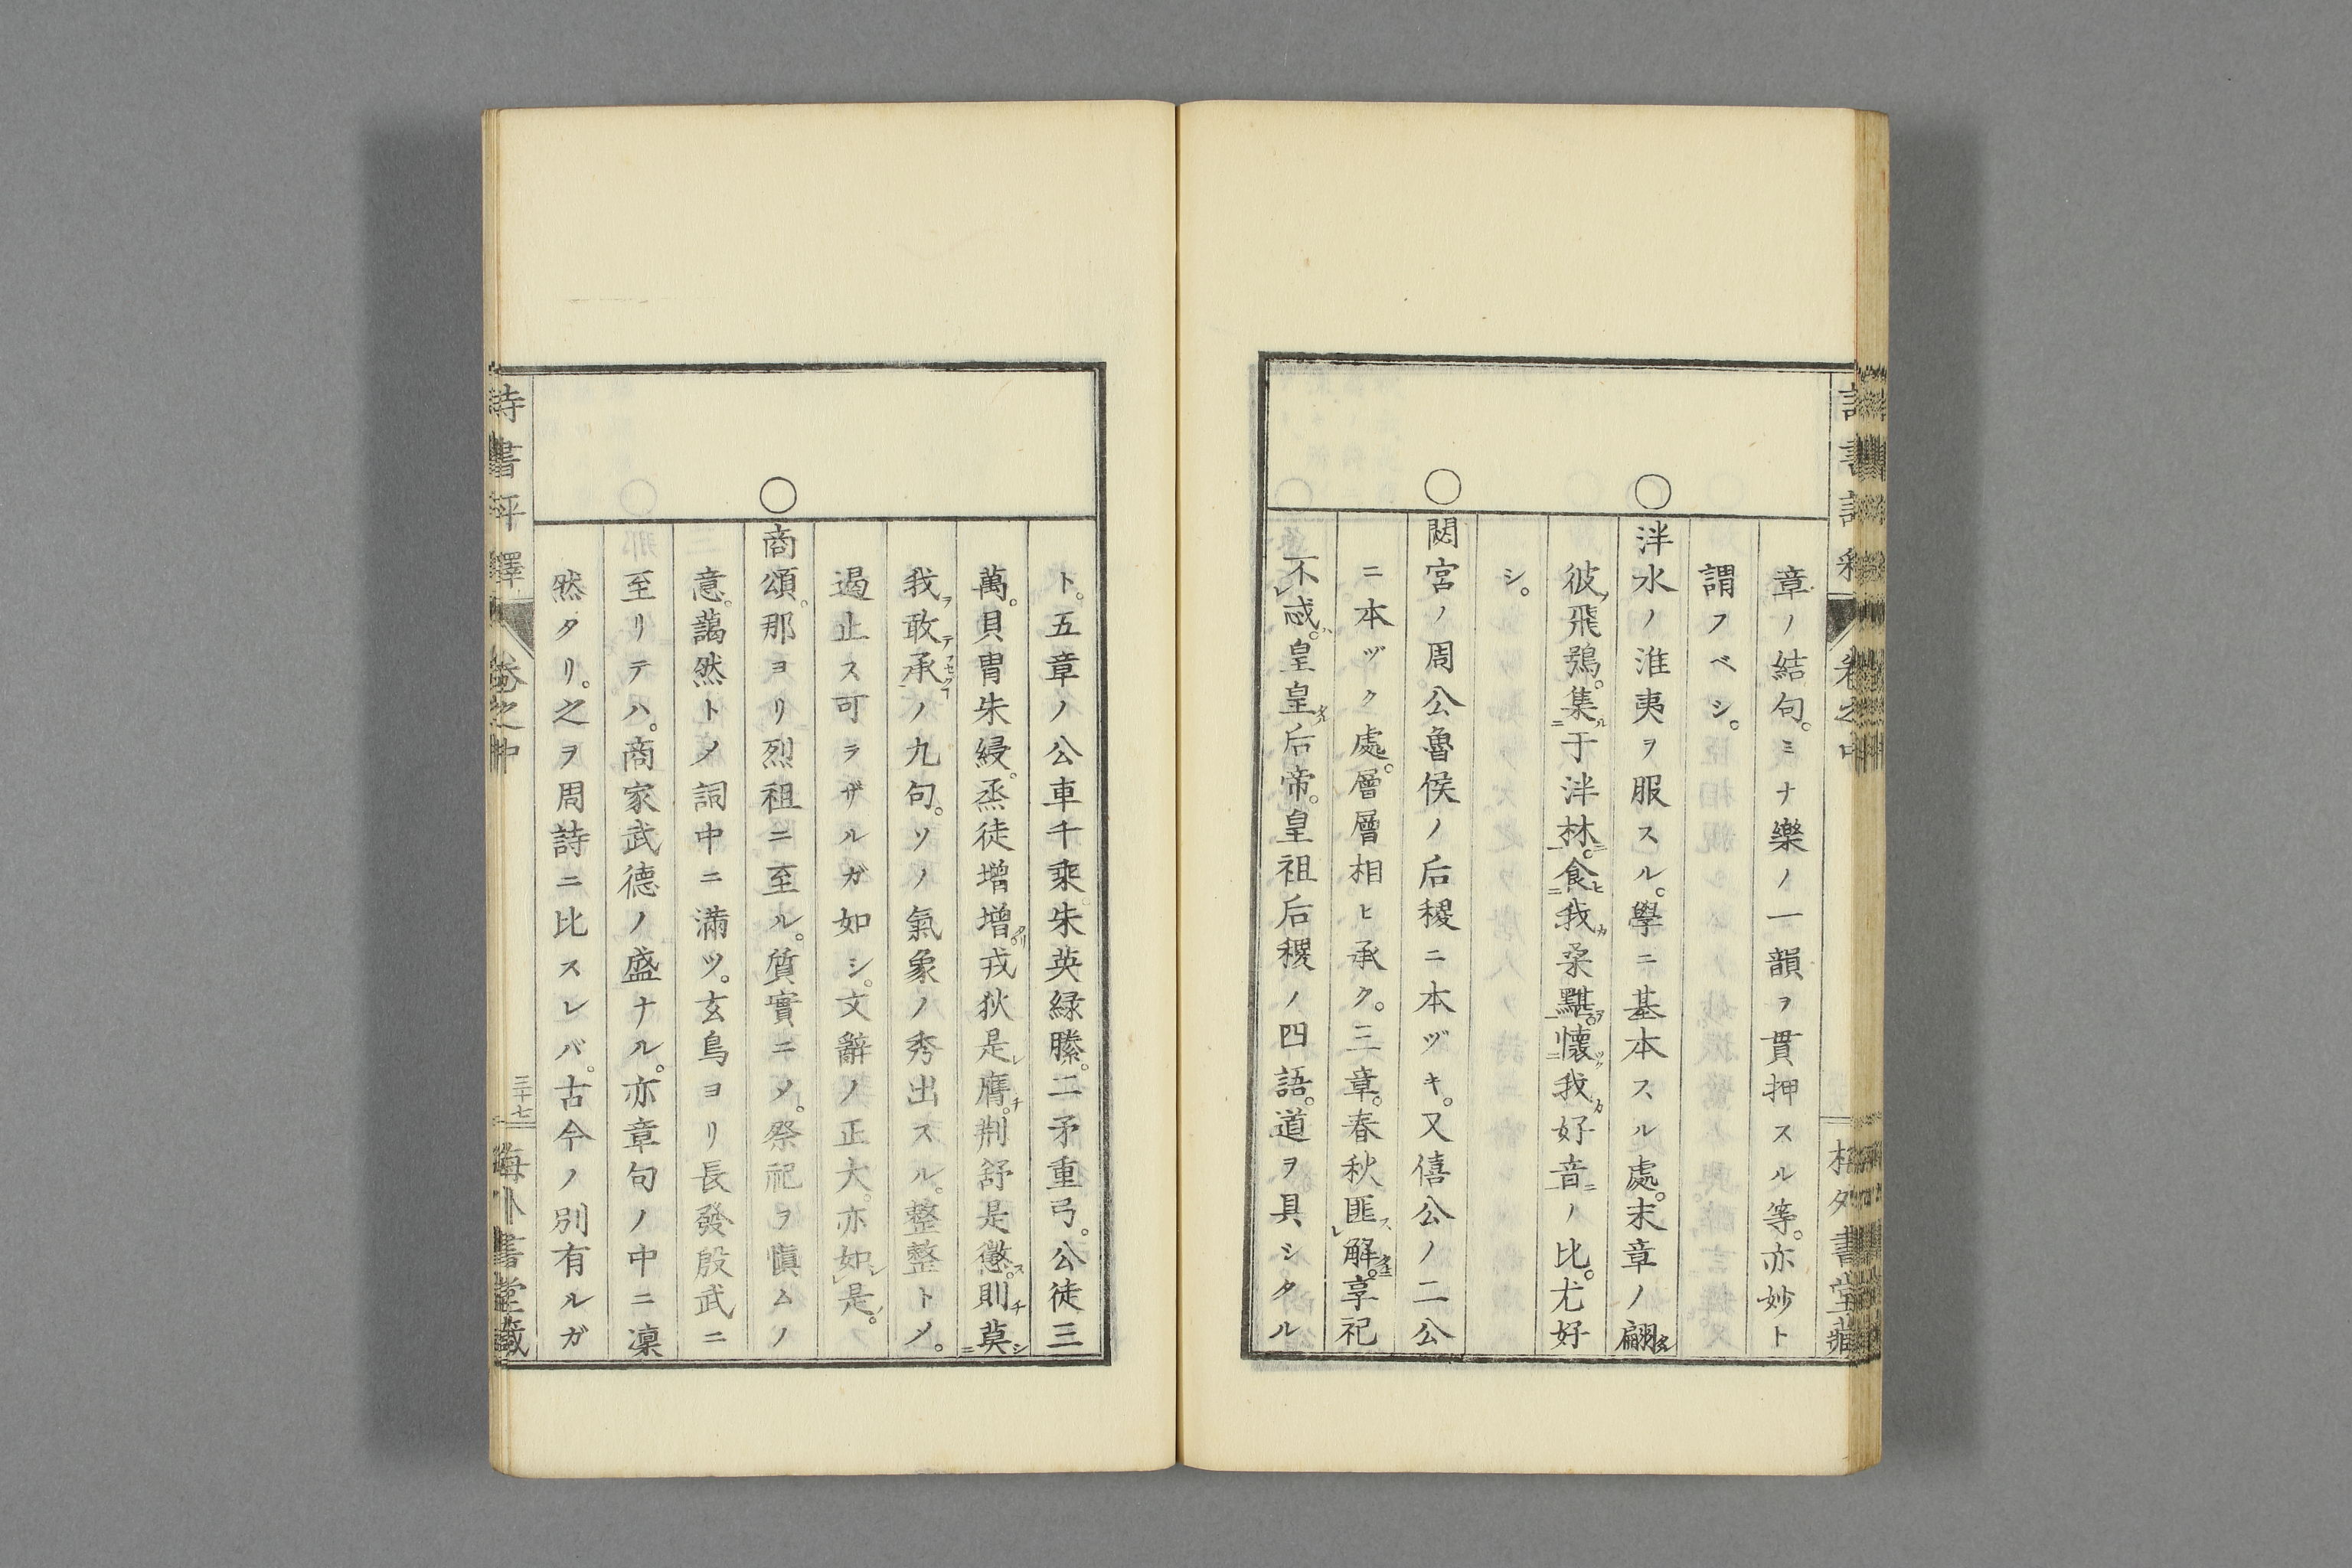 章ノ結句。ミナ樂ノ一韻ヲ貫押スル等。亦妙ト
謂フベシ。
○泮水ノ淮夷ヲ服スル。學ニ基本スル處。末章ノ翩タル
彼ノ飛鴞。集ル二于泮林ニ一。食ヒ二我カ桑黮ヲ一。懷ク二我カ好音ニノ比。尤好
シ。
○閟宮ノ周公魯侯ノ后稷ニ本ヅキ。又僖公ノ二公
ニ本ヅク處。層層相ヒ承ク。三章。春秋匪スレ解。享祀
不レ忒ハ。皇皇タル后帝。皇祖后稷ノ四語。道ヲ具シタル
ト。五章ノ公車千乘。朱英緑縢。二矛重弓。公徒三
萬。貝冑朱綅。烝徒增增タリ。戎狄是レ膺チ。荆舒是懲ス。則チ莫シ二
我ヲ敢テ承一ノ九句。ソノ氣象ノ秀出スル。整整トメ。
遏止ス可ラザルガ如シ。文辭ノ正大。亦如レ是。
○商頌。那ヨリ烈祖ニ至ル。質實ニメ。祭祀ヲ愼ムノ
意。藹然トメ詞中ニ滿ツ。玄鳥ヨリ長發殷武ニ
至リテハ。商家武德ノ盛ナル。亦章句ノ中ニ凜
然タリ。之ヲ周詩ニ比スレバ。古今ノ別有ルガ
詩書評釋
卷之中
三十七